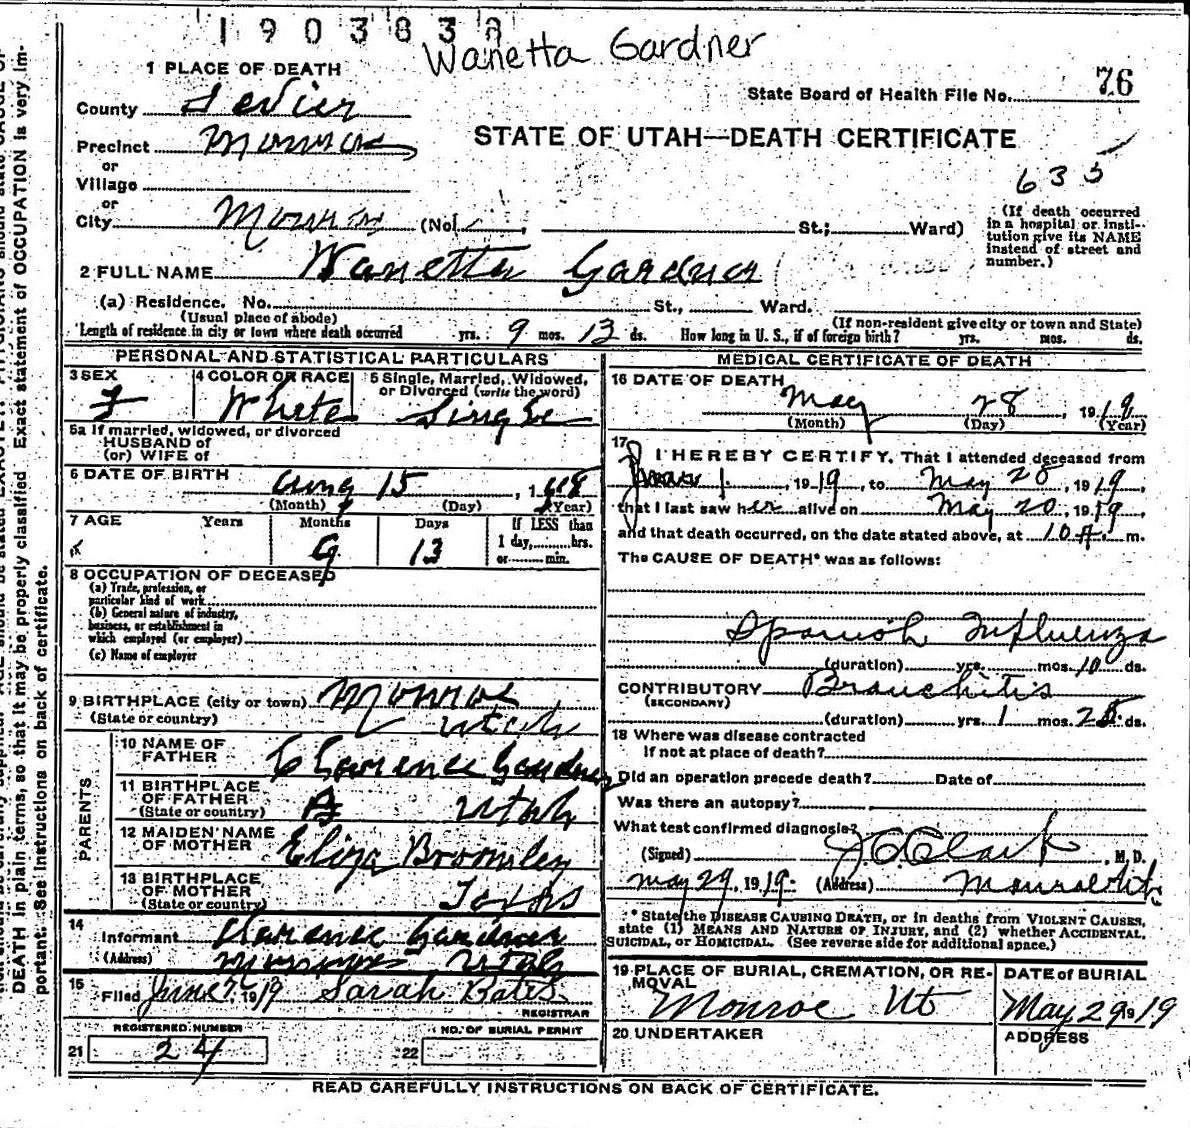 1903838
Wanetta Gardner
1 PLACE OF DEATH
State Board of Health File No. 76
County Sevier
STATE OF UTAH—DEATH CERTIFICATE
Precinct Monroe
or
Village
635
or
City Monroe (No. , St.; Ward)
(If death occurred in a hospital or insti-tution give its NAME instead of street and number.)
2 FULL NAME Wanetta Gardner
(a) Residence. No. St., Ward.
(Usual place of abode) (If non-resident give city or town and State)
Length of residence in city or town where death occurred yrs. 9 mos. 13 ds. How long in U. S., if of foreign birth? yrs. mos. ds.
PERSONAL AND STATISTICAL PARTICULARS
3 SEX F
4 COLOR OR RACE White
5 Single, Married, Widowed, or Divorced (write the word) Single
5a If married, widowed, or divorced
HUSBAND of
(or) WIFE of
6 DATE OF BIRTH Aug 15, 1
(Month) (Day) (Year)
7 AGE Years Months Days If LESS than
9 13 1 day, hrs.
or min.
8 OCCUPATION OF DECEASED
(a) Trade, profession, or
particular kind of work
(b) General nature of industry,
business, or establishment in
which employed (or employer)
(c) Name of employer
9 BIRTHPLACE (city or town) Monroe
(State or country) Utah
PARENTS
10 NAME OF FATHER Clarence Gardner
11 BIRTHPLACE OF FATHER
(State or country) Utah
12 MAIDEN NAME OF MOTHER Eliza Bromley
13 BIRTHPLACE OF MOTHER
(State or country) Texas
14 Informant Clarence Gardner
(Address) Monroe Utah
15 Filed June 7, 1919 Sarah Bates
REGISTRAR
REGISTERED NUMBER NO. OF BURIAL PERMIT
21 24 22
MEDICAL CERTIFICATE OF DEATH
16 DATE OF DEATH
May 28, 1919
(Month) (Day) (Year)
17 I HEREBY CERTIFY, That I attended deceased from
1, 1919, to May 28, 1919,
that I last saw her alive on May 20, 1919,
and that death occurred, on the date stated above, at 10 A. m.
The CAUSE OF DEATH* was as follows:
Spanish Influenza
(duration) yrs. mos. 10 ds.
CONTRIBUTORY Bronchitis
(SECONDARY)
(duration) yrs. 1 mos. ds.
18 Where was disease contracted
if not at place of death?
Did an operation precede death? Date of
Was there an autopsy?
What test confirmed diagnosis?
(Signed) J C Clark, M. D.
May 29, 1919. (Address) Monroe Ut.
* State the DISEASE CAUSING DEATH, or in deaths from VIOLENT CAUSES,
state (1) MEANS AND NATURE OF INJURY, and (2) whether ACCIDENTAL,
SUICIDAL, or HOMICIDAL. (See reverse side for additional space.)
19 PLACE OF BURIAL, CREMATION, OR RE-MOVAL
Monroe Ut
DATE of BURIAL
May 29 1919
20 UNDERTAKER
ADDRESS
READ CAREFULLY INSTRUCTIONS ON BACK OF CERTIFICATE.
DEATH in plain terms, so that it may be properly classified. Exact statement of OCCUPATION is very im-
portant. See instructions on back of certificate.